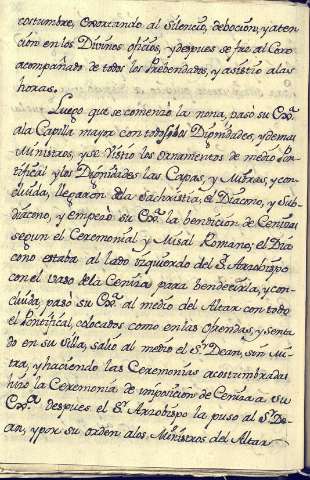 costumbre, exortando al Silencio, deboción, y aten
ción en los Divinos oficios, y despues se fue al Coro
acompañado de todos los Prebendados, y assistio a las
horas.
Luego que se comenzó la nona, pasó su Exª.
a la Capilla mayor con todos los Dignidades, y demas
Ministros, y se vistio los ornamentos de medio Pon
tifical y los Dignidades las Capas, y Mitras, y con
cluida, llegaron de la Sachristia, el Diacono, y Sub
diacono, y empezó su Exª. la bendicion de Ceniza
segun el Ceremonial, y Misal Romano; el Dia
cono estaba al lado izquierdo del Sr. Arzobispo
con el vaso de la Ceniza para bendecirla, y con
cluida, pasó su Exª. al medio del Altar con todo
el Pontifical, colocados como en las Ofrendas, y senta
do en su silla, salió al medio el Sr. Dean, sin Mi
tra, y haciendo las Ceremonias acostumbradas
hizo la Ceremonia de imposición de Ceniza a su
Exª. despues el Sr. Arzobispo la puso al Sr. De
an, y por su orden a los Ministros del Altar